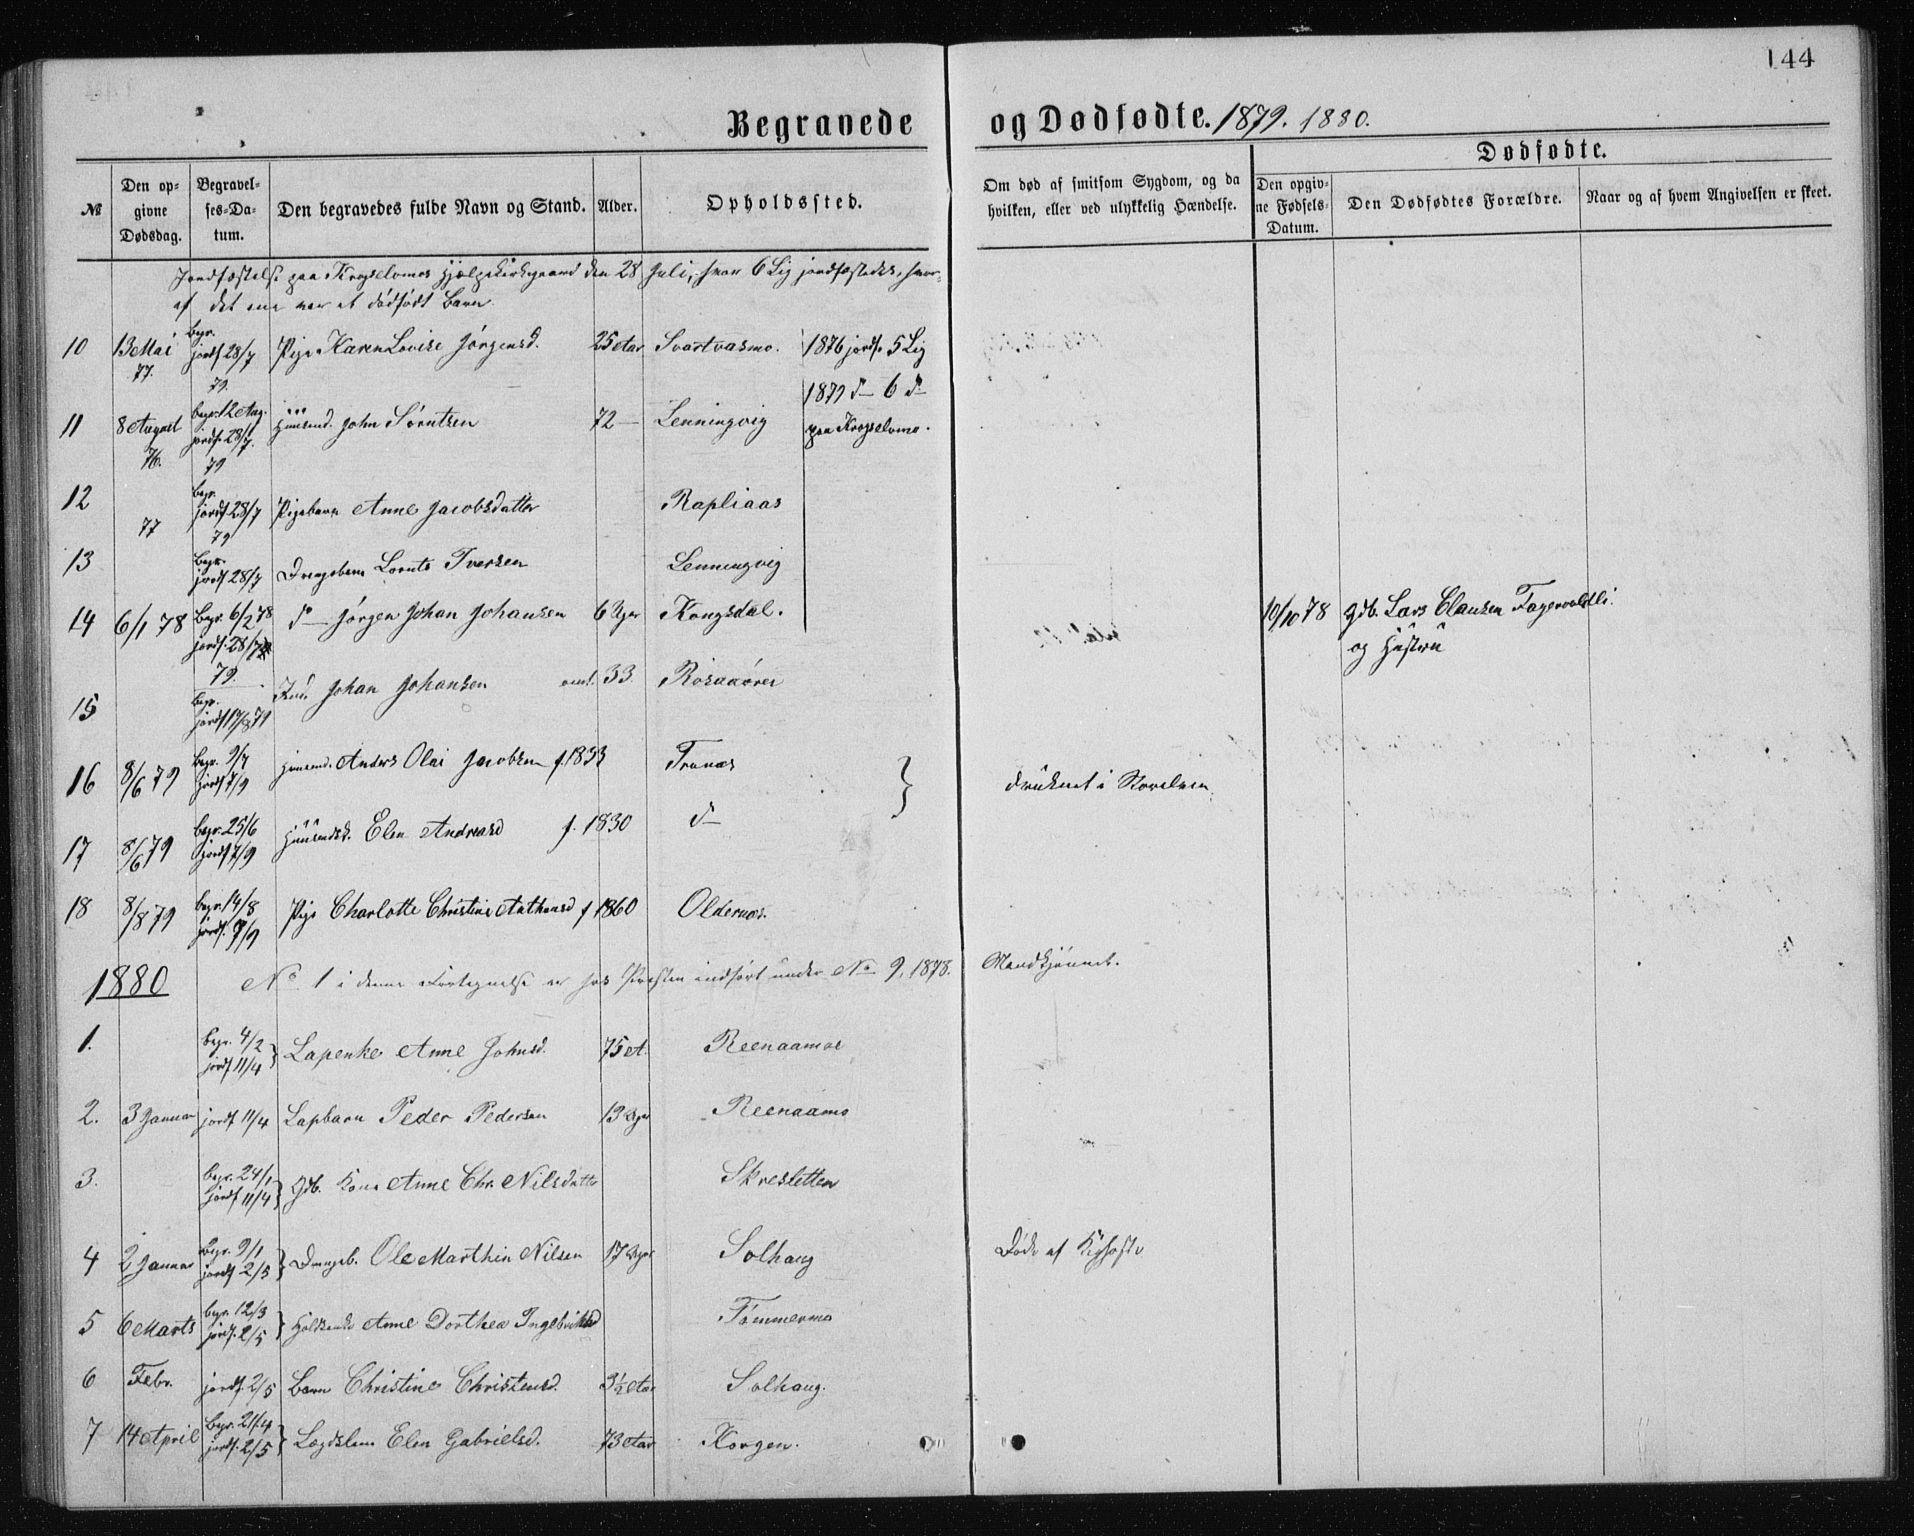 144
Begravede og Dødfødte. 1879. 1880.
Dødfødte.
№
Den opgivne Dødsdag.
Begravelses-Datum.
Den begravedes fulde Navn og Stand.
Alder.
Opholdssted.
Om død af smitsom Sygdom, og da hvilken, eller ved ulykkelig Hændelse.
Den opgivne Fødsels-Datum.
Den Dødfødtes Forældre.
Naar og af hvem Angivelsen er skeet.
Jordfæstelse paa Krogselvmos Hjælpekirkegaard den 28 Juli, hvor 6 Lig jordfæstedes, hvor-
af det ene var et dødfødt Barn.
10 13 Mai 77. begr. jordf 28/7 79. Pige Karen Lovise Jørgensd. 25 Aar Svartvasmo. 1876 jordf. 5 Lig
1879 d— 6 d—
11 8 August 76. begr. 12 Aug. jordf. 28/7. 79 Huusmd. John Sørntsen 72 — Lenningvig paa Krogselvmo.
12 77 begr. jordf 28/7 79 Pigebarn Anne Jacobsdatter Rapliaas
13 begr. jordf 28/7 Drengebarn Lornts Iversen Lenningvig
14 6/1 78 Begr. 6/2 78 jordf. 28/7 79. d— Jørgen Johan Johansen 6 Uger Kongsdal. 10/10 78 Gdb. Lars Clausen Fagervoldli.
og Hustru
15 begr. jordf 17/8 79 Johan Johansen 33. Røsaaøren
16 8/6 79 Begr. 9/7 jordf 7/9 Huusmd. Anders Olai Jacobsen f. 1833 Tranæs } druknet i Storelven.
17 8/6 79 Begr. 25/6 jordf 7/9 Huusmdsk. Elen Andreasd f. 1830 d—
18 8/8 79 begr. 14/8 jordf. 7/9 Pige Charlotte Christine Anthonsd f 1860 Oldernæs.
1880 No. 1 i denne Fortegnelse er hos Præsten indført under No 9, 1878. Mandkjønnet.
1. begr. 4/2 jordf 11/4 } Lapenke Anne Johnsd. 75 A. Reenaamoe
2. 3 Januar jordf 11/4 Lapbarn Peder Pedersen 13 Uger Reenaamo
3. begr. 24/1 jordf 11/4 } Gdb. Kone Anne Chr. Nilsdatter Skresletten
4 2 Januar Begr. 9/1 jordf 2/5 } Drengeb. Ole Marthin Nilsen 17 Uger Solhaug Døde af Kighoste
5 6 Marts begr. 12/3 jordf. 2/5 } Anne Dorthea Ingebrigtsd Tømmermo
6 Febr. jordf. 2/5 Barn Christine Christensd. 3½ Aar Solhaug.
7 14 April Begr. 21/4 jordf. 2/5 } Lægdslem Elen Gabrielsd. 73 Aar Korgen.